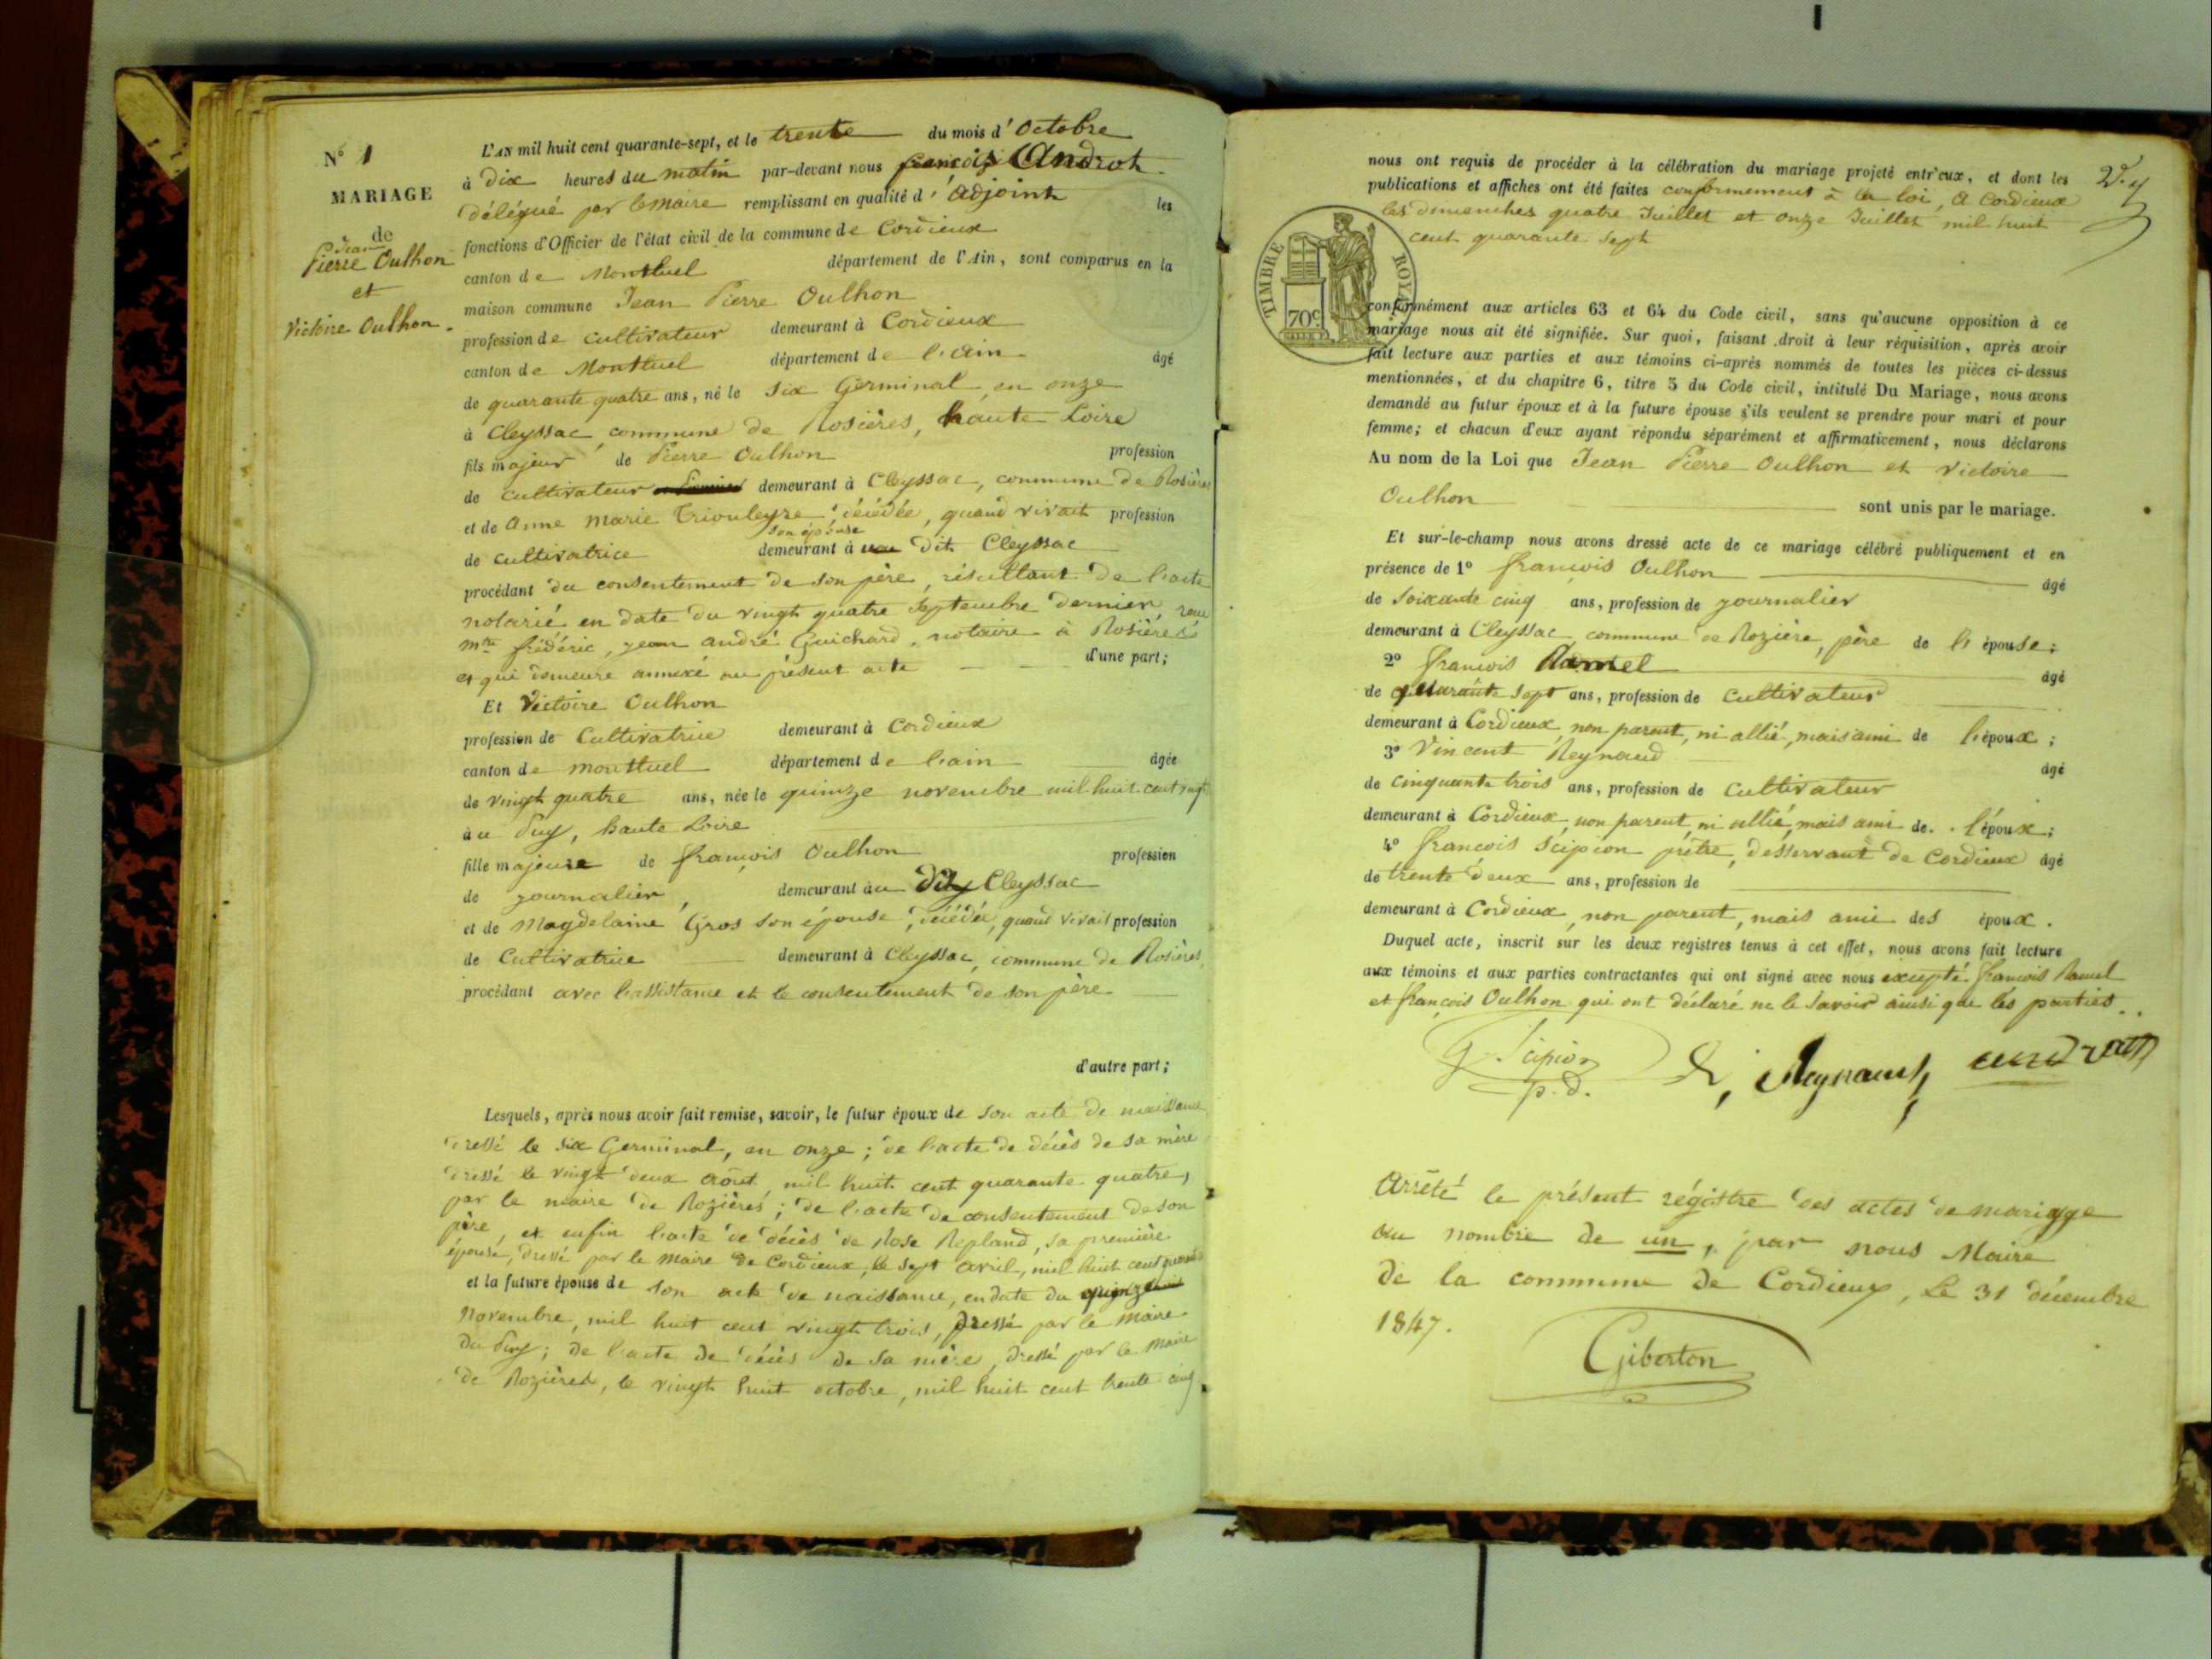 N° 1
MARIAGE
de
Jean
Pierre Oulhon
et
Victoire Oulhon.
L'AN mil huit cent quarante-sept, et le trente du mois d'Octobre
à dix heures du matin par-devant nous françois Androt
délégué par le Maire remplissant en qualité d'adjoint les
fonctions d'Officier de l'état civil de la commune de Cordieux
canton de Montluel département de l'Ain, sont comparus en la
maison commune Jean Pierre Oulhon
profession de cultivateur demeurant à Cordieux
canton de Montluel département de l'ain âgé
de quarante quatre ans, né le six Germinal an onze
à Cleyssac commune de Rosières, haute Loire
fils majeur de Pierre Oulhon profession
de cultivateur demeurant à Cleyssac, commune de Rosières
et de Anne Marie Triouleyre décédée, quand vivait profession
son épouse
de cultivatrice demeurant à dit Cleyssac
procédant du consentement de son père, résultant de l'acte
notarié en date du vingt quatre Septembre dernier reçu
mtre frédéric, jean andré Guichard, notaire à Rosières
et qui demeure annexé au présent acte d'une part;
Et Victoire Oulhon
profession de Cultivatrice demeurant à Cordieux
canton de montluel département de l'ain âgée
de vingt quatre ans, née le quinze novembre mil huit cent vingt
au Puy, haute Loire
fille majeure de françois Oulhon profession
de journalier, demeurant au dit Cleyssac
et de Magdelaine Gros son épouse, décédée, quand vivait profession
de Cultivatrice demeurant à Cleyssac, commune de Rosières,
procédant avec l'assistance et le consentement de son père
d'autre part;
Lesquels, après nous avoir fait remise, savoir, le futur époux de son acte de naissance
dressé le six Germinal, an onze; de l'acte de décès de sa mère
dressé le vingt deux août mil huit cent quarante quatre,
par le maire de Rozières; de l'acte de consentement de son
père, et enfin l'acte de décès de Rose Repland, sa première
épouse, dressé par le Maire de Cordieux, le sept avril, mil huit cent
et la future épouse de son acte de naissance, en date du quinze
Novembre, mil huit cent vingt trois, dressé par le Maire
du Puy; de l'acte de décès de sa mère, dressé par le Maire
de Rozières, le vingt huit octobre, mil huit cent trente cinq
nous ont requis de procéder à la célébration du mariage projeté entr'eux, et dont les
publications et affiches ont été faites conformément à la loi, à Cordieux
les dimanches quatre Juillet et onze Juillet mil huit
cent quarante sept
TIMBRE ROYAL
70c
conformément aux articles 63 et 64 du Code civil, sans qu'aucune opposition à ce
mariage nous ait été signifiée. Sur quoi, faisant droit à leur réquisition, après avoir
fait lecture aux parties et aux témoins ci-après nommés de toutes les pièces ci-dessus
mentionnées, et du chapitre 6, titre 5 du Code civil, intitulé Du Mariage, nous avons
demandé au futur époux et à la future épouse s'ils veulent se prendre pour mari et pour
femme; et chacun d'eux ayant répondu séparément et affirmativement, nous déclarons
Au nom de la Loi que Jean Pierre Oulhon et Victoire
Oulhon sont unis par le mariage.
Et sur-le-champ nous avons dressé acte de ce mariage célébré publiquement et en
présence de 1° françois Oulhon âgé
de soixante cinq ans, profession de journalier
demeurant à Cleyssac commune de Rozière, père de l'épouse;
2° françois Ramel âgé
de quarante sept ans, profession de Cultivateur
demeurant à Cordieux, non parent, ni allié, mais ami de l'époux;
3° Vincent Reynaud âgé
de cinquante trois ans, profession de Cultivateur
demeurant à Cordieux, non parent, ni allié, mais ami de l'époux;
4° françois Scipion prêtre, desservant de Cordieux âgé
de trente deux ans, profession de
demeurant à Cordieux, non parent, mais ami des époux.
Duquel acte, inscrit sur les deux registres tenus à cet effet, nous avons fait lecture
aux témoins et aux parties contractantes qui ont signé avec nous excepté françois Ramel
et françois Oulhon qui ont déclaré ne le savoir ainsi que les parties.
Scipion
p. d.
Reynaud
androt
Arrêté le présent régistre des actes de mariage
au nombre de un, par nous Maire
de la commune de Cordieux, Le 31 décembre
1847.
Giberton